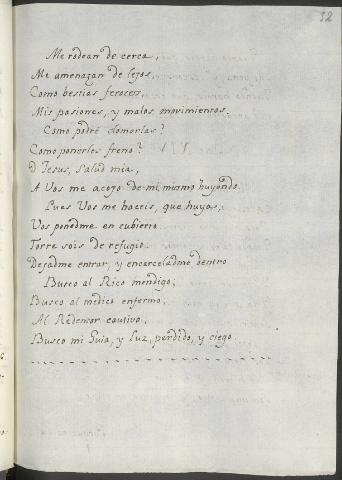 52
Me rodean de cerca,
Me amenazan de lejos,
Como bestias feroces,
Mis pasiones, y malos movimientos.
Como podrè domarlas?
Como ponerles freno?
O Jesus, salud mia,
A Vos me acojo de mi mismo huyendo.
Pues Vos me haceis, que huya,
Vos ponedme en cubierto.
Torre sois de refugio.
Dejadme entrar, y encarceladme dentro
Busco al Rico mendigo,
Busco al medico enfermo,
Al Redentor cautivo,
Busco mi Guia, y Luz, perdido, y ciego.